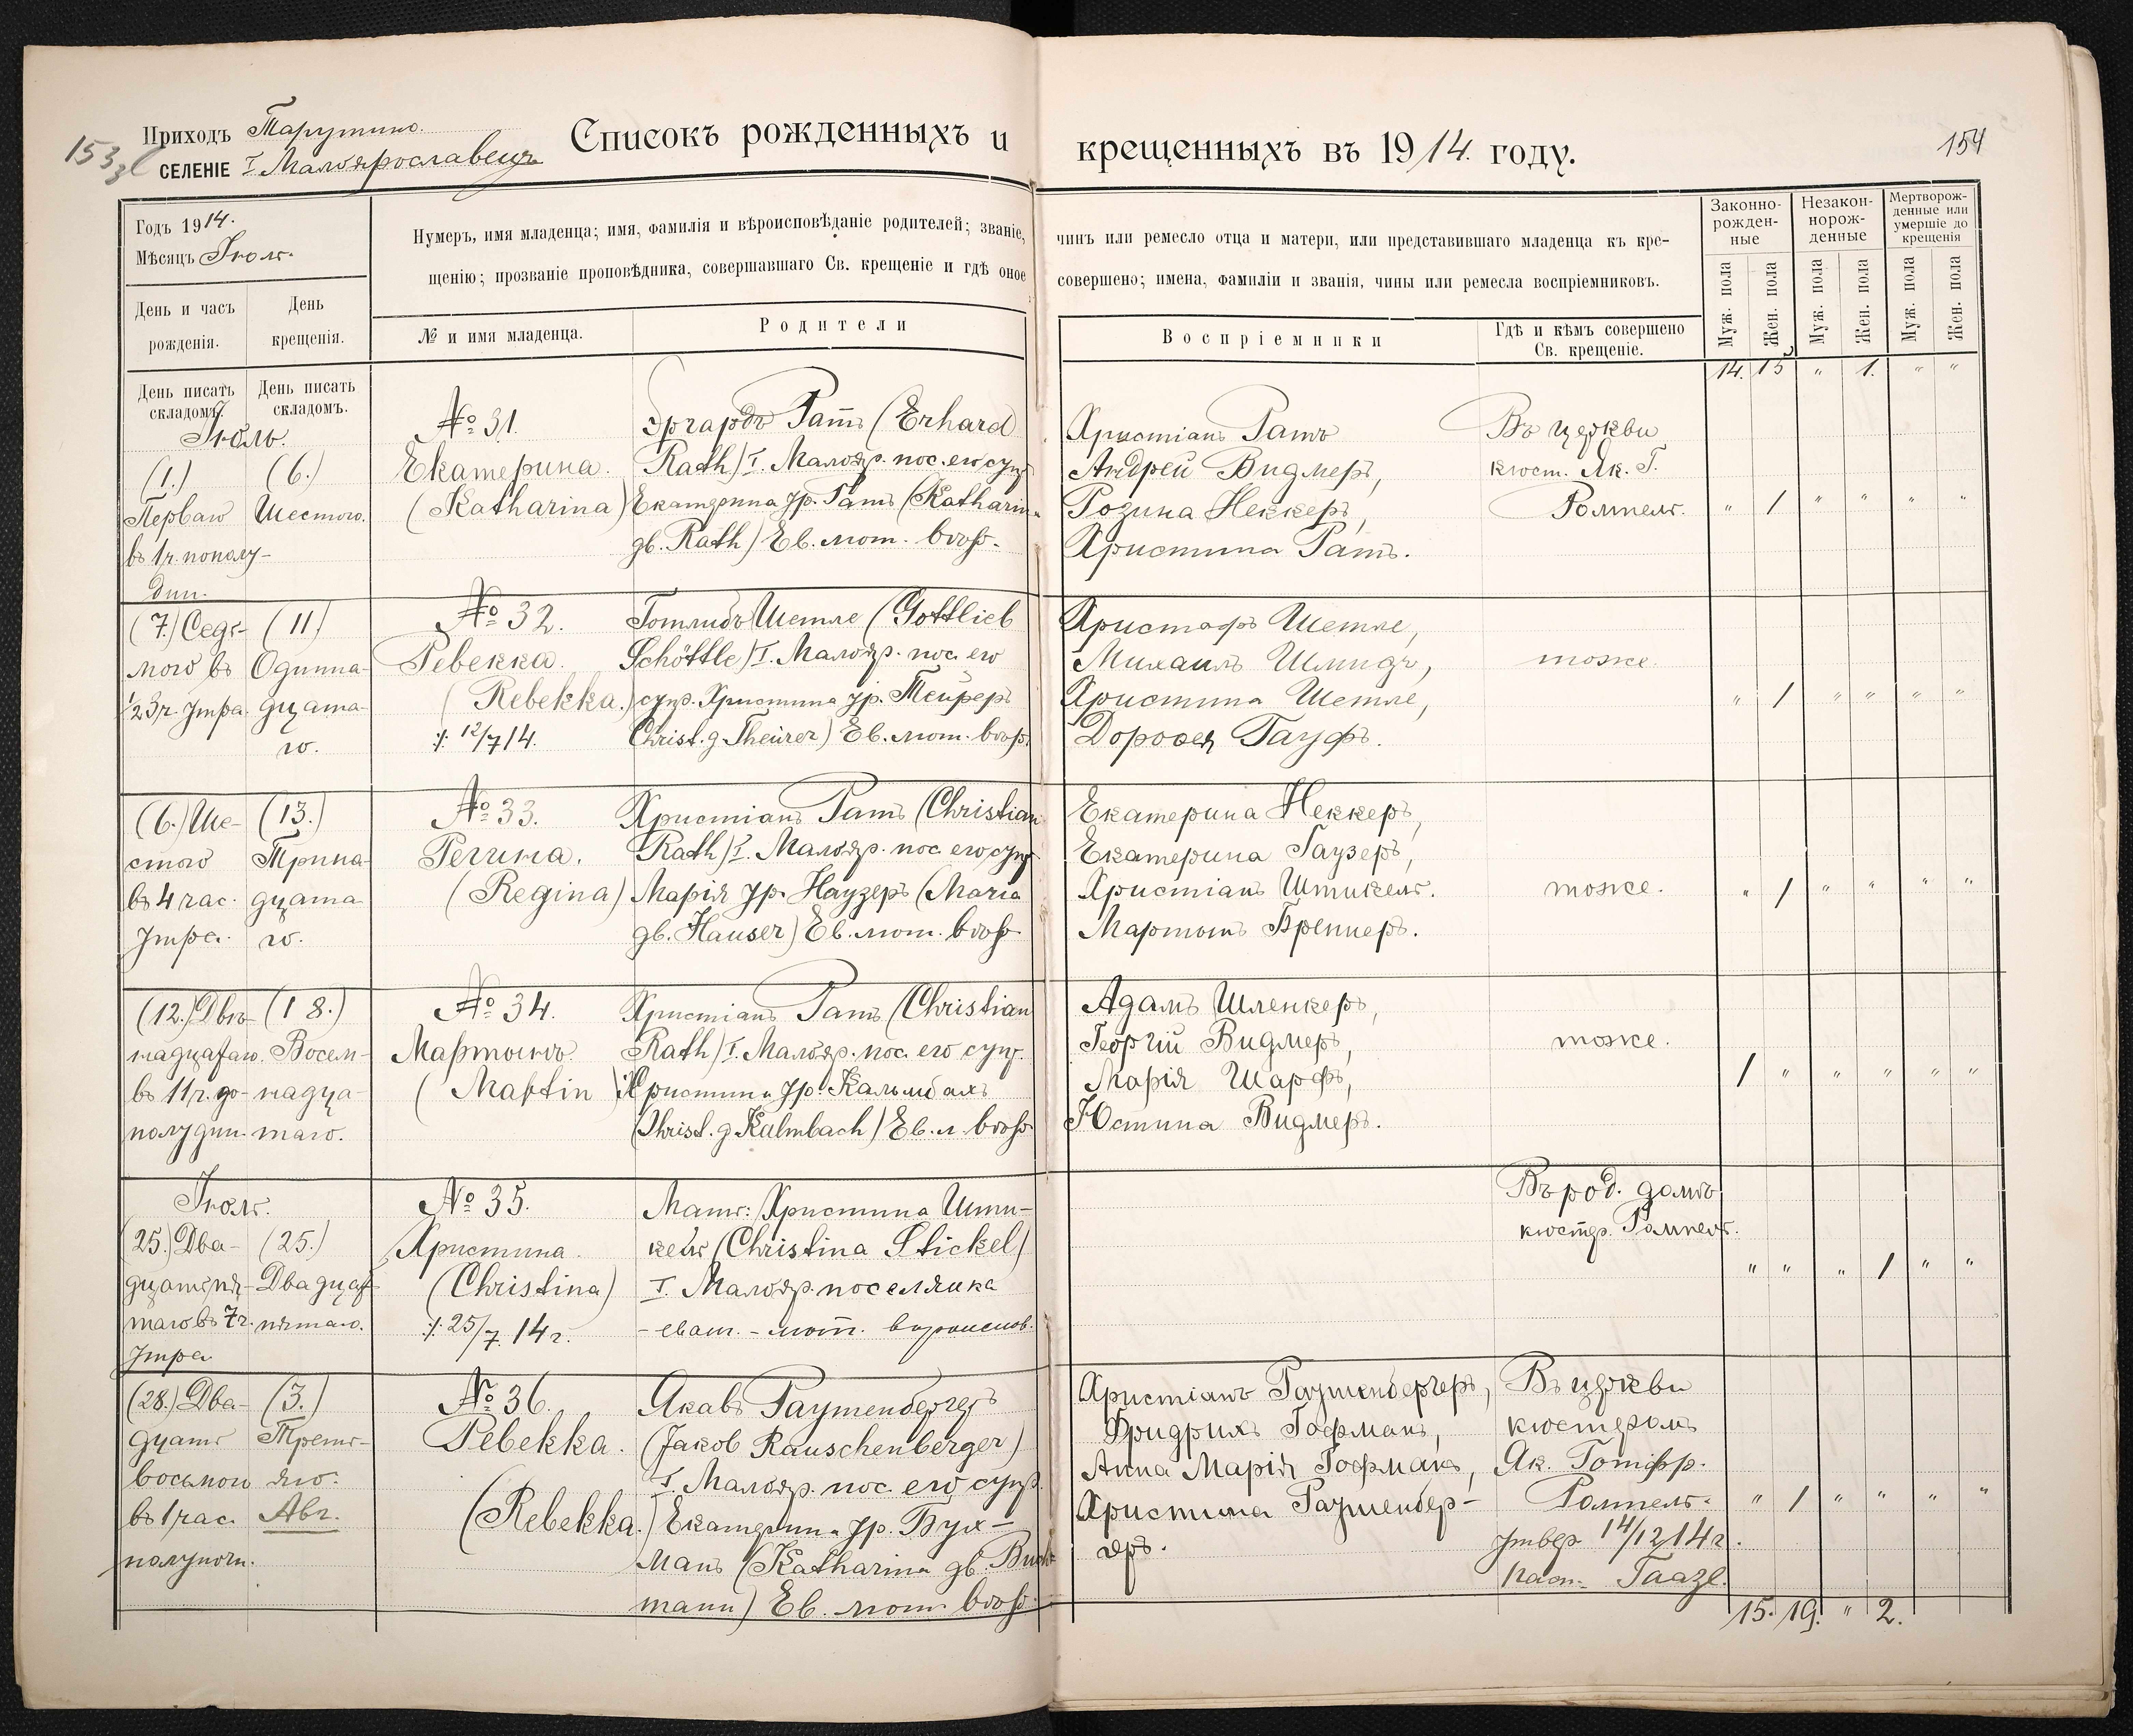 153
Приходъ Тарутино.
СЕЛЕНІЕ I. Малоярославецъ
Списокъ рожденныхъ и крещенныхъ въ 1914. году.
154
Годъ 1914.
Мѣсяцъ Іюль.
Нумеръ, имя младенца; имя, фамилія и вѣроисповѣданіе родителей; званіе, чинъ или ремесло отца и матери, или представившаго младенца къ кре-
щенію; прозваніе проповѣдника, совершавшаго Св. крещеніе и гдѣ оное совершено; имена, фамиліи и званія, чины или ремесла воспріемниковъ.
День и часъ
рожденія.
День
крещенія.
№ и имя младенца.
Родители
Воспріемники
Гдѣ и кѣмъ совершено
Св. крещеніе.
Законно-
рожден-
ные
Незакон-
норож-
денные
Мертворож-
денные или
умершіе до
крещенія
Муж. пола
Жен. пола
Муж. пола
Жен. пола
Муж. пола
Жен. пола
День писать
складомъ.
День писать
складомъ.
14. 15 " 1. " "
Іюль.
(1.)
Перваго
въ 1 ч. пополу-
дни.
(6.)
Шестого.
№ 31.
Екатерина.
(Katharina)
Эргардъ Ратъ (Erhard
Rath) I. Малояр. пос. его супр
Екатерина ур. Ратъ (Katharina
gb. Rath) Ев. лют. вѣроъ.
Христіанъ Ратъ
Андрей Видмеръ,
Розина Неккеръ,
Христина Ратъ.
Въ церкви
кюст. Як. Г.
Ромпель.
" 1 " " " "
(7.) Седь-
мого въ
1/2 3 ч. утра.
(11)
Одинна-
дцата-
го.
№ 32.
Ревекка.
(Rebekka.)
12/7 14.
Готлибъ Шетле (Gottlieb
Schöttle) I. Малояр. пос. его
супр. Христина ур. Тейреръ
Christ. g. Theurer) Ев. лют. вѣроъ.
Христофъ Шетле,
Михаилъ Шмидъ,
Христина Шетле,
Доровея Гауфъ.
тоже.
" 1 " " " "
(6.) Ше-
стого
въ 4 час.
утра.
(13.)
Трина-
дцата-
го.
№ 33.
Регина.
(Regina)
Христіанъ Ратъ (Christian
Rath) I. Малояр. пос. его супр
Марія ур. Наузеръ (Maria
gb. Hauser) Ев. лют. вѣроъ.
Екатерина Неккеръ,
Екатерина Гаузеръ,
Христіанъ Штикель.
Мартынъ Бреннеръ.
тоже.
" 1 " " " "
(12.) Двѣ-
надцатаго.
въ 11 ч. до-
полудни.
(18.)
Восем-
надца-
таго.
№ 34.
Мартынъ.
(Martin)
Христіанъ Ратъ (Christian
Rath) I. Малояр. пос. его супр.
Христина ур. Кальмбахъ
(Christ. g. Kalmbach) Ев. л. вѣроъ
Адамъ Шленкеръ,
Георгій Видмеръ,
Марія Шарфъ,
Юстина Видмеръ.
тоже.
1 " " " " "
Іюль.
(25.) Два-
дцать пя-
таго въ 7 ч.
утра
(25.)
Двадцать
пятаго.
№ 35.
Христина.
(Christina)
25/7. 14 г.
Мать: Христина Шти-
кель (Christina Stickel)
I. Малояр. поселянка
- еванг. - лют. вѣроисповъ.
Въ род. домѣ
кюстер. Ромпель.
" " " 1 " "
(28.) Два-
дцать
восьмого
въ 1 час.
полуночи.
(3.)
Треть-
яго.
Авг.
№ 36.
Ребекка.
(Rebekka.)
Якавъ Раушенбергеръ
(Jakob Rauschenberger)
I. Малояр. пос. его супр.
Екатерина ур. Бух-
манъ (Katharina gb. Buch-
mann) Ев. лют. вѣроъ.
Христіанъ Раушенбергеръ,
Фридрихъ Гофманъ,
Анна Марія Гофманъ,
Христина Раушенбер-
геръ.
Въ церкви
кюстеромъ
Як. Готфр.
Ромпель.
утвер. 14/12 14 г.
паст. Гаазе.
" 1 " " " "
15. 19. " 2.